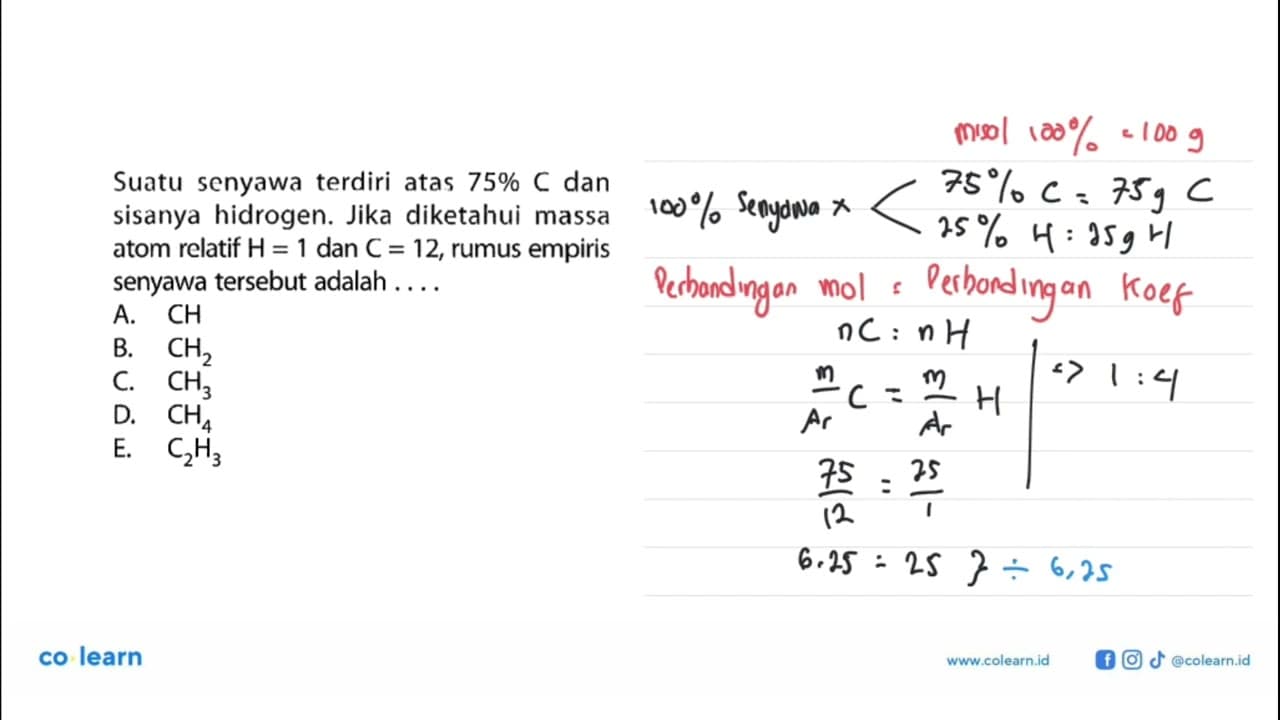 Suatu senyawa terdiri atas 75% C dan
sisanya hidrogen. Jika diketahui massa
atom relatif H = 1 dan C = 12, rumus empiris
senyawa tersebut adalah . . . .
A. CH
B. CH₂
C. CH₃
D. CH₄
E. C₂H₃
misal 100% = 100 g
100% Senyawa x < 75% C = 75 g C
25% H : 25 g H
Perbandingan mol = Perbandingan Koef
nC : nH
m/Ar C = m/Ar H <=> 1 : 4
75/12 = 25/1
6.25 = 25 } ÷ 6,25
co learn
www.colearn.id
@colearn.id